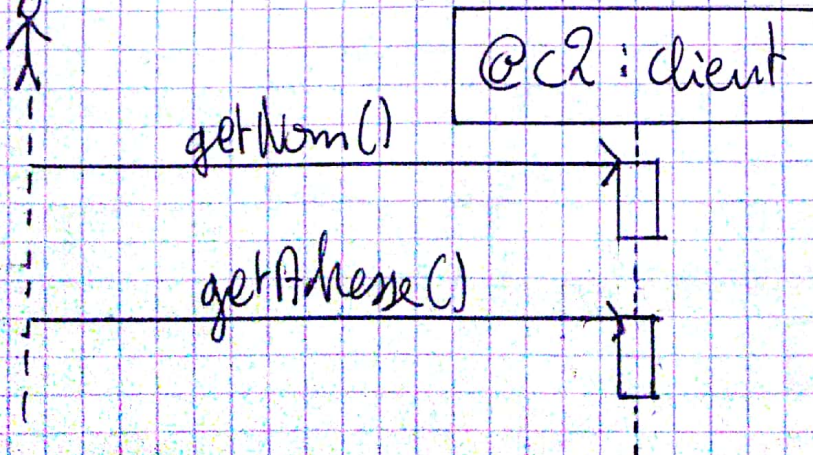 @c2 : client
getNom()
getAdresse()